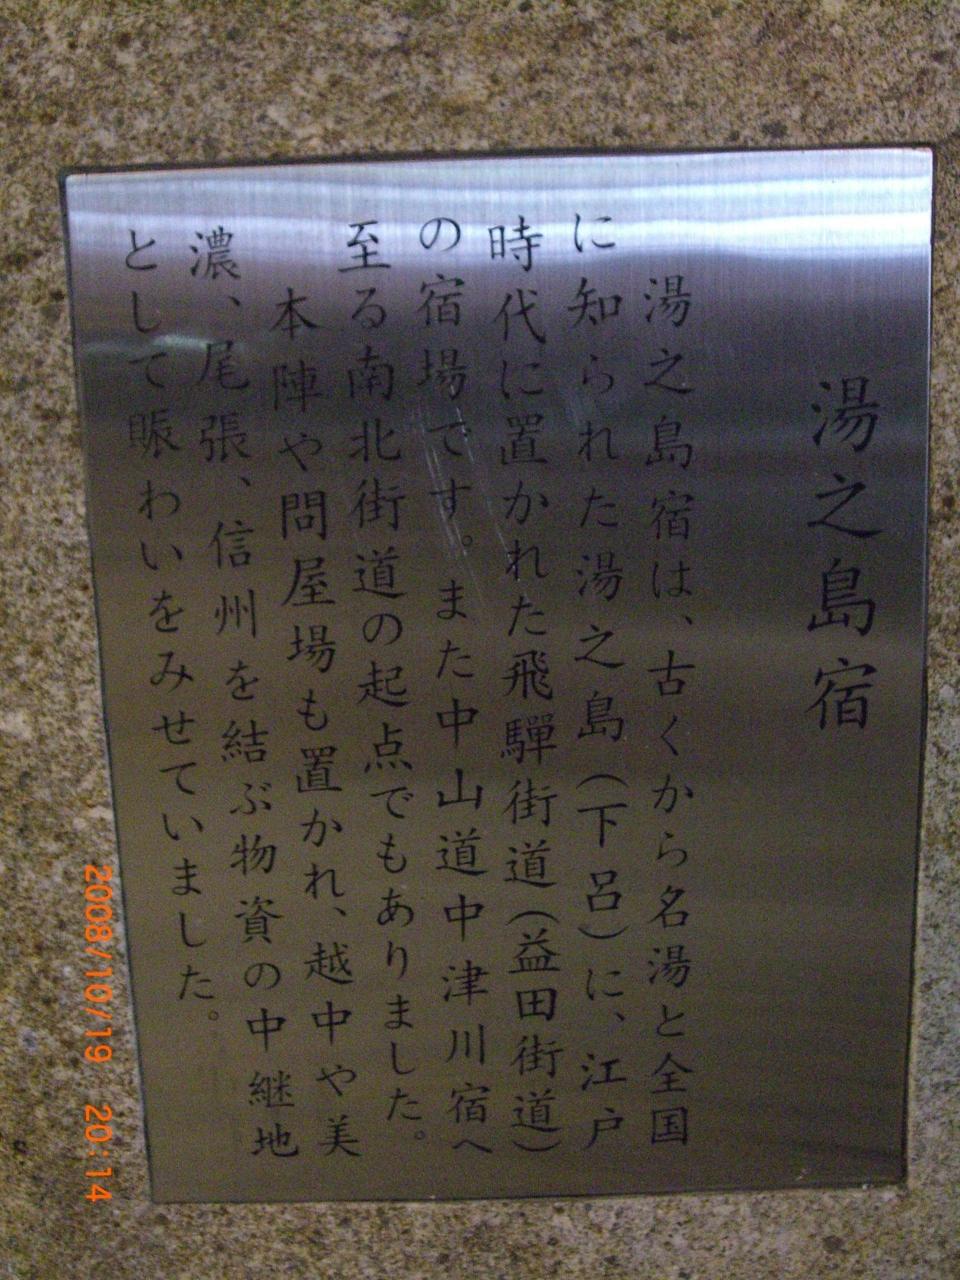 湯之島宿
湯之島宿は、古くから名湯と全国
に知られた湯之島(下呂)に、江戸
時代に置かれた飛驒街道(益田街道)
の宿場です。また中山道中津川宿へ
至る南北街道の起点でもありました。
本陣や問屋場も置かれ、越中や美
濃、尾張、信州を結ぶ物資の中継地
として賑わいをみせていました。
2008/10/19 20:14